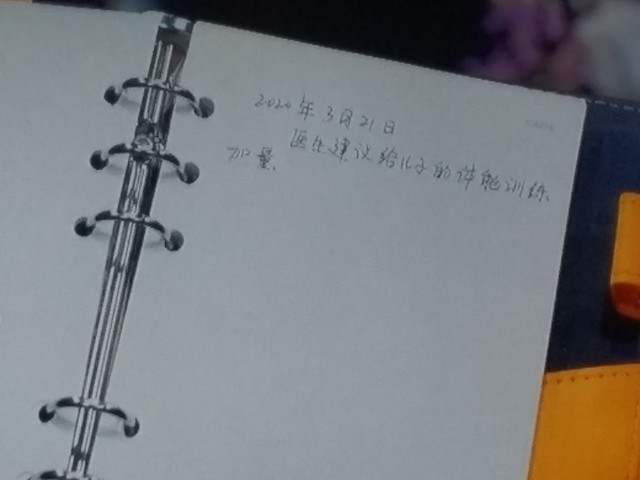 2020年3月21日
医生建议给儿子的体能训练
加量